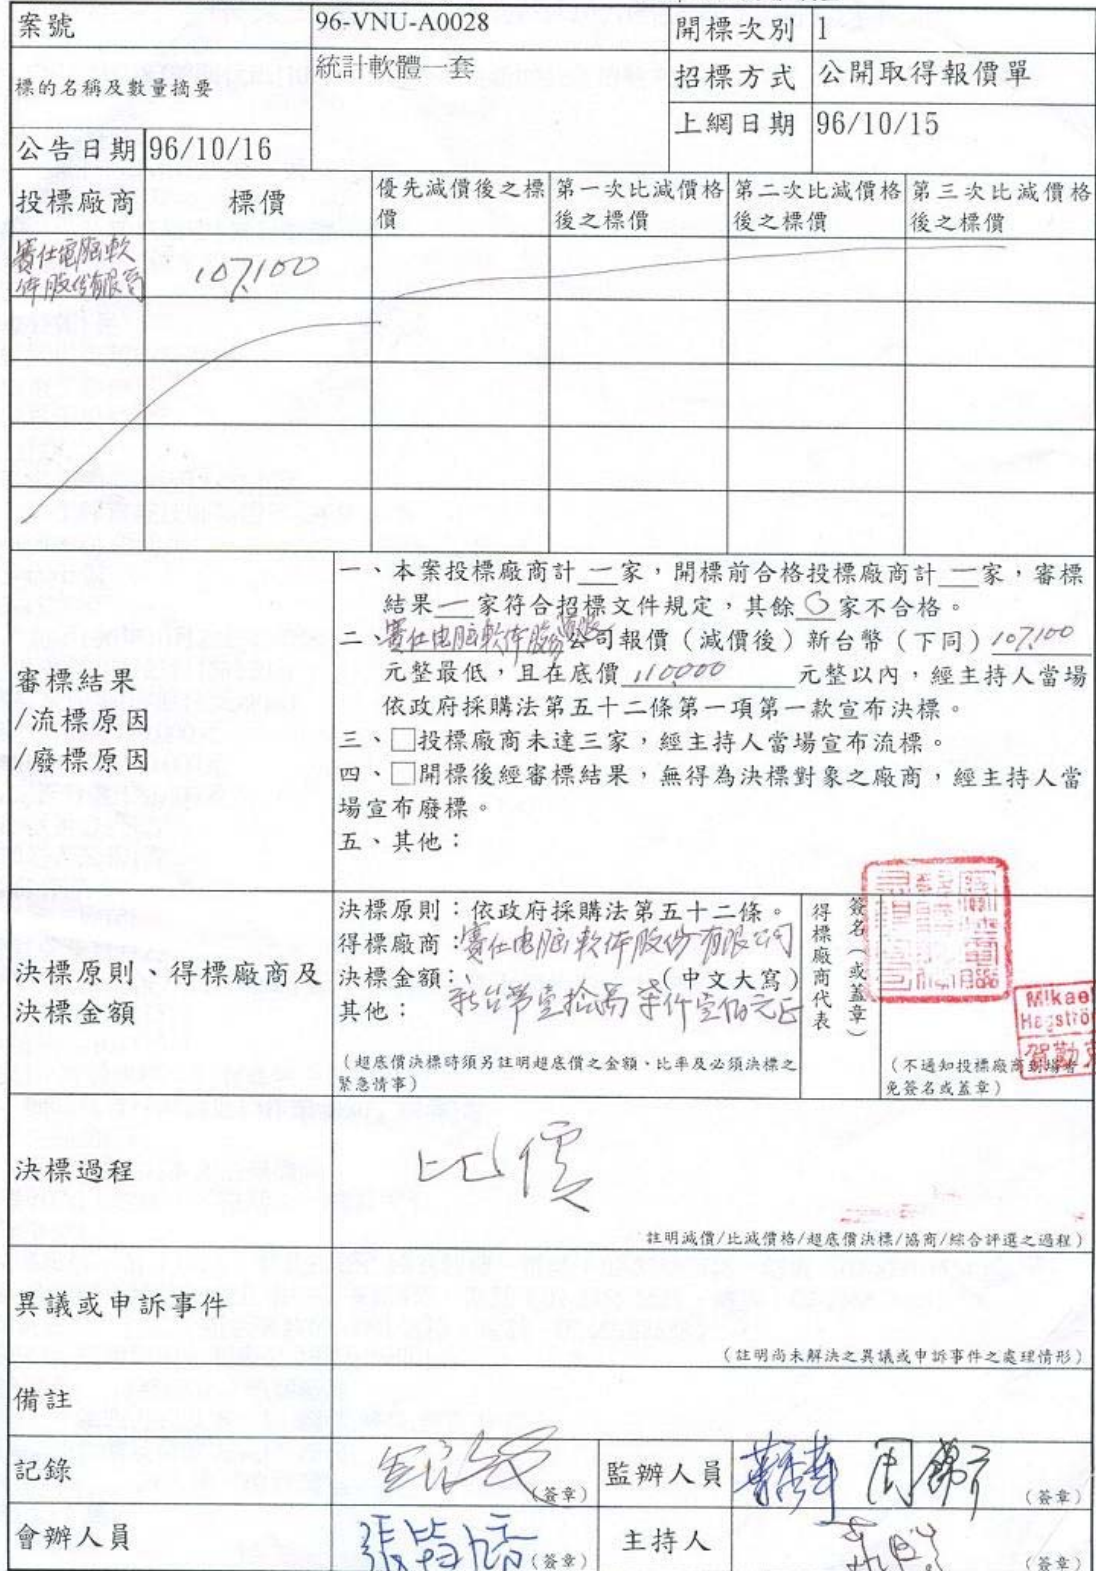 案號 96-VNU-A0028 開標次別 1
標的名稱及數量摘要 統計軟體一套 招標方式 公開取得報價單
上網日期 96/10/15
公告日期 96/10/16
投標廠商 標價 優先減價後之標價 第一次比減價格後之標價 第二次比減價格後之標價 第三次比減價格後之標價
賽仕電腦軟
体股份有限公司 107,100
審標結果
/流標原因
/廢標原因
一、本案投標廠商計 一 家,開標前合格投標廠商計 一 家,審標
結果 一 家符合招標文件規定,其餘 0 家不合格。
二、賽仕电脑軟体股份有限公司報價(減價後)新台幣(下同)107,100
元整最低,且在底價 110,000 元整以內,經主持人當場
依政府採購法第五十二條第一項第一款宣布決標。
三、□投標廠商未達三家,經主持人當場宣布流標。
四、□開標後經審標結果,無得為決標對象之廠商,經主持人當
場宣布廢標。
五、其他:
決標原則、得標廠商及
決標金額
決標原則:依政府採購法第五十二條。
得標廠商:賽仕电脑軟体股份有限公司
決標金額: (中文大寫)
其他: 新台幣壹拾萬柒仟壹佰元正
(超底價決標時須另註明超底價之金額、比率及必須決標之
緊急情事)
得標廠商代表
簽名(或蓋章)
Mikae
Hagströ
賀勤
(不通知投標廠商到場者
免簽名或蓋章)
決標過程 比價
註明減價/比減價格/超底價決標/協商/綜合評選之過程)
異議或申訴事件
(註明尚未解決之異議或申訴事件之處理情形)
備註
記錄 (簽章) 監辦人員 (簽章)
會辦人員 (簽章) 主持人 (簽章)